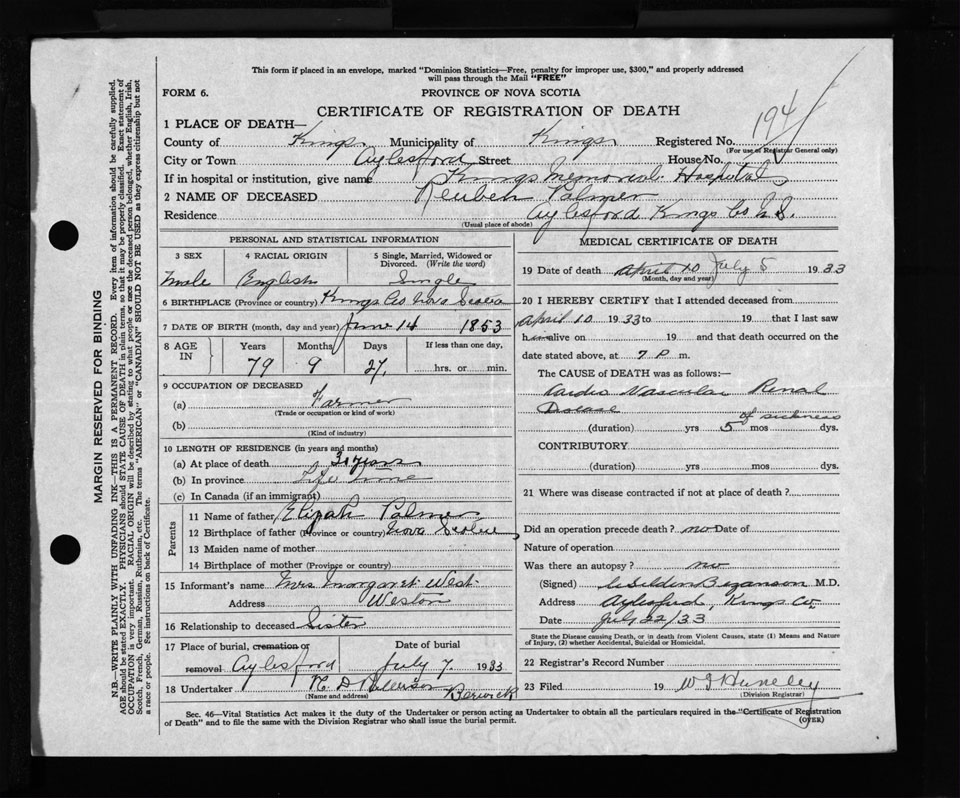 This form if placed in an envelope, marked "Dominion Statistics—Free, penalty for improper use, $300," and properly addressed
will pass through the Mail "FREE"
FORM 6.
PROVINCE OF NOVA SCOTIA
CERTIFICATE OF REGISTRATION OF DEATH
194
1 PLACE OF DEATH—
County of Kings Municipality of Kings Registered No.
(For use of Registrar General only)
City or Town Aylesford Street House No.
If in hospital or institution, give name Kings Memorial Hospital
2 NAME OF DECEASED Reuben Palmer
Residence Aylesford Kings Co N.S.
(Usual place of abode)
PERSONAL AND STATISTICAL INFORMATION
3 SEX 4 RACIAL ORIGIN 5 Single, Married, Widowed or
Divorced. (Write the word)
Male English Single
6 BIRTHPLACE (Province or country) Kings Co Nova Scotia
7 DATE OF BIRTH (month, day and year) June 14 1853
8 AGE
IN
Years Months Days If less than one day,
79 9 27 hrs. or min.
9 OCCUPATION OF DECEASED
(a) Farmer
(Trade or occupation or kind of work)
(b)
(Kind of industry)
10 LENGTH OF RESIDENCE (in years and months)
(a) At place of death 30 years
(b) In province Life Time
(c) In Canada (if an immigrant)
Parents
11 Name of father Elijah Palmer
12 Birthplace of father (Province or country) Nova Scotia
13 Maiden name of mother
14 Birthplace of mother (Province or country)
15 Informant's name Mrs Margaret West
Address Weston
16 Relationship to deceased Sister
17 Place of burial, cremation or Date of burial
removal Aylesford July 7 1933
18 Undertaker Berwick
(Name and address)
MEDICAL CERTIFICATE OF DEATH
19 Date of death April 10 July 5 1933
(Month, day and year)
20 I HEREBY CERTIFY that I attended deceased from
April 10 1933 to 19 that I last saw
h alive on 19 and that death occurred on the
date stated above, at 7 P m.
The CAUSE OF DEATH was as follows:—
Cardio Vascular Renal
Disease of sickness
(duration) yrs 5 mos dys.
CONTRIBUTORY
(duration) yrs. mos. dys.
21 Where was disease contracted if not at place of death?
Did an operation precede death? no Date of
Nature of operation
Was there an autopsy? no
(Signed) M.D.
Address Aylesford, Kings Co.
Date July 22/33
State the Disease causing Death, or in death from Violent Causes, state (1) Means and Nature
of Injury, (2) whether Accidental, Suicidal or Homicidal.
22 Registrar's Record Number
23 Filed 19
(Division Registrar)
Sec. 46—Vital Statistics Act makes it the duty of the Undertaker or person acting as Undertaker to obtain all the particulars required in the "Certificate of Registration
of Death" and to file the same with the Division Registrar who shall issue the burial permit.
(OVER)
MARGIN RESERVED FOR BINDING
N.B.—WRITE PLAINLY WITH UNFADING INK—THIS IS A PERMANENT RECORD. Every item of information should be carefully supplied.
AGE should be stated EXACTLY. PHYSICIANS should STATE CAUSE OF DEATH in plain terms, so that it may be properly classified. Exact statement of
OCCUPATION is very important. RACIAL ORIGIN will be described by stating to what people or race the deceased person belonged, whether English, Irish,
Scotch, French, German, Russian, Ruthenian, etc. The terms "AMERICAN" or "CANADIAN" SHOULD NOT BE USED as they express citizenship but not
a race or people. See instructions on back of Certificate.